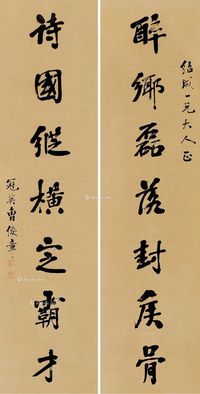 紹城一兄大人正
醉鄉磊落封侯骨
詩國縱橫定霸才
冠英曾俊章